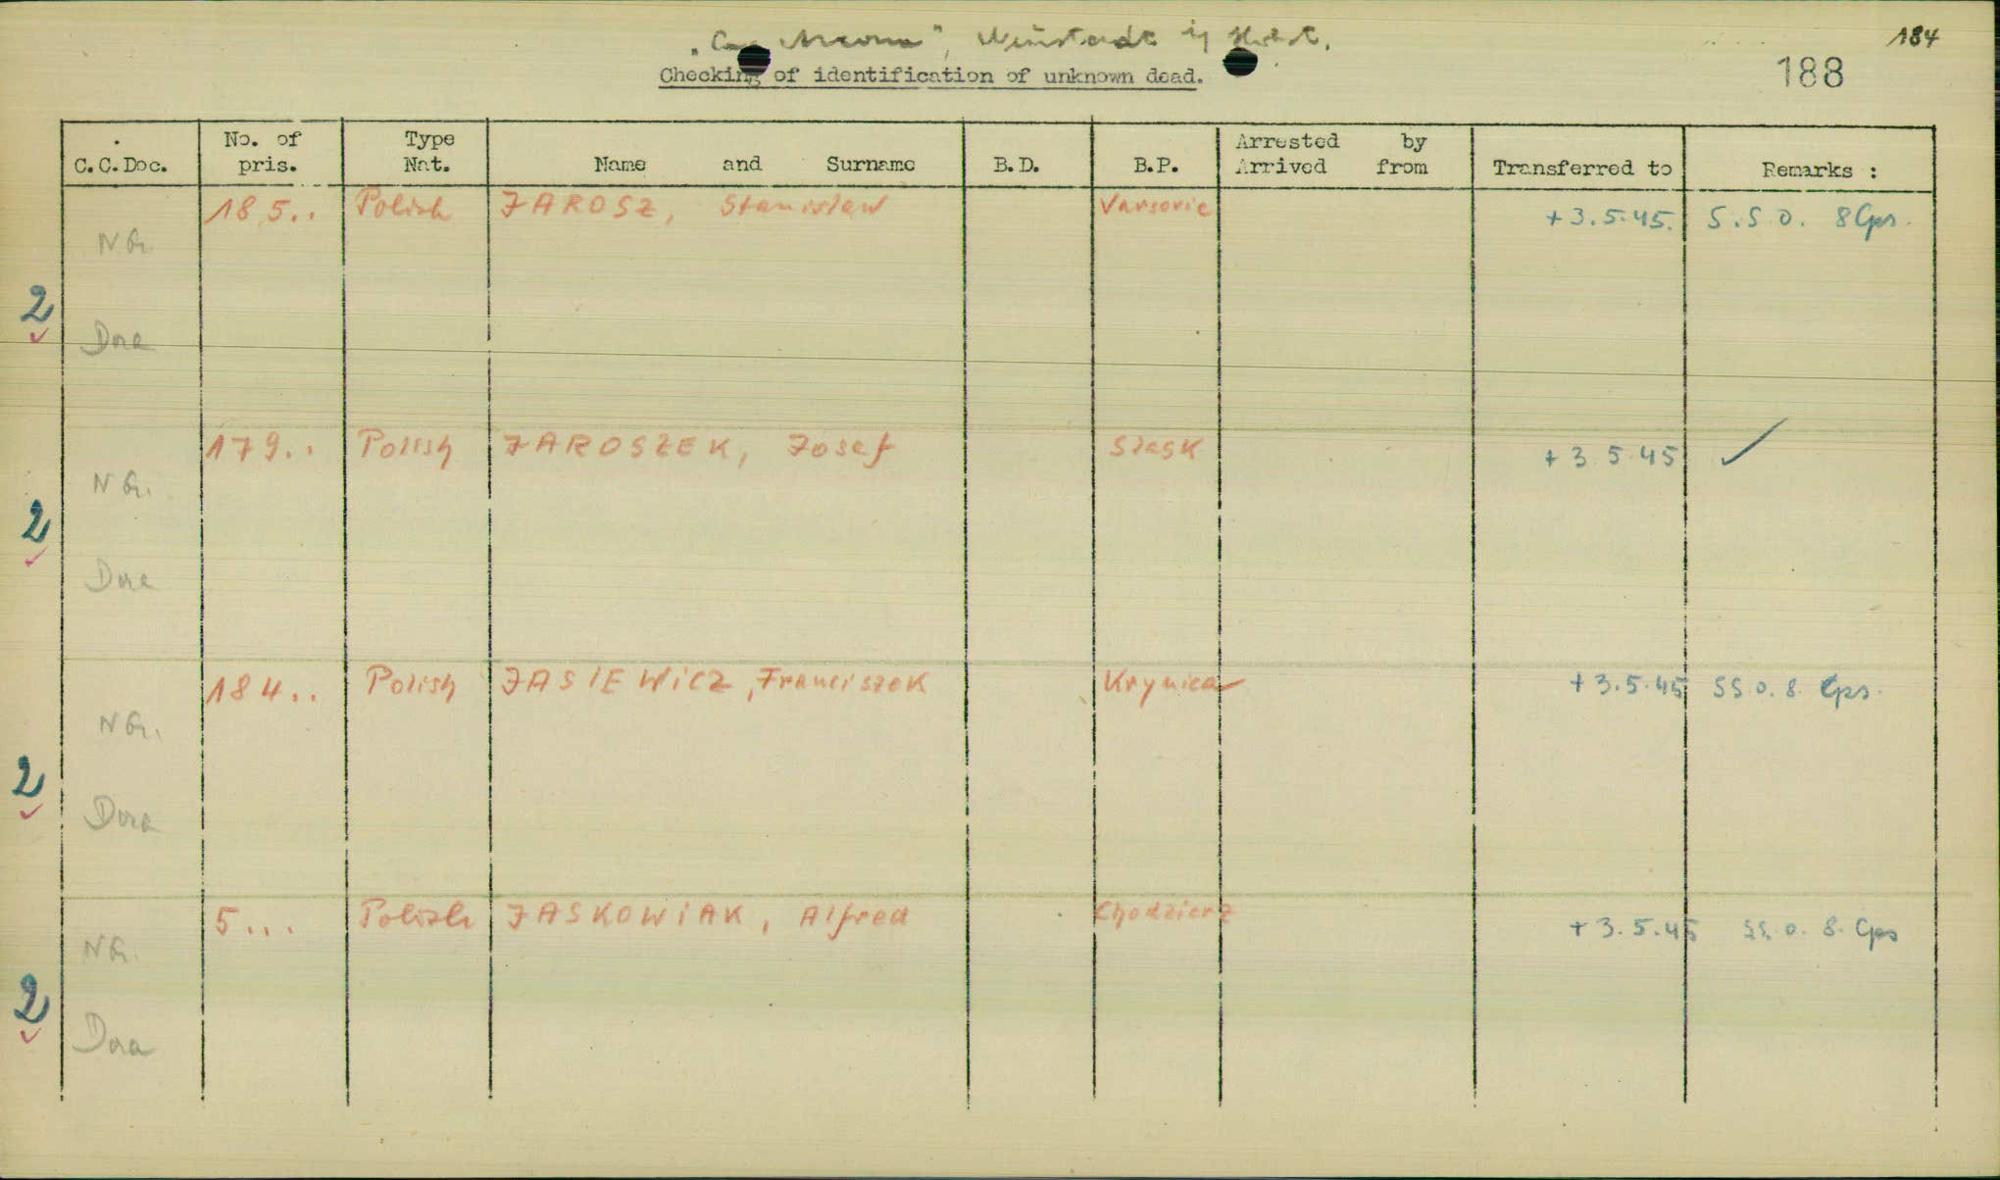 "Cap Arcona", Neustadt in Holst.
184
188
Checking of identification of unknown dead.
C.C.Doc. No. of pris. Type Nat. Name and Surname B.D. B.P. Arrested by Arrived from Transferred to Remarks :
185.. Polish JAROSZ, Stanislaw Varsovie +3.5.45. S.S.O. 8 Cps.
NG.
2
Dora
179.. Polish JAROSZEK, Josef +3.5.45 ✓
NG.
2
Dora
184.. Polish JASIEWICZ, Franciszek Krynica +3.5.45 SS.O. 8. Cps.
NG.
2
Dora
5... Polish JASKOWIAK, Alfred Chodzierz +3.5.45 SS.O. 8. Cps
NG.
2
Dora